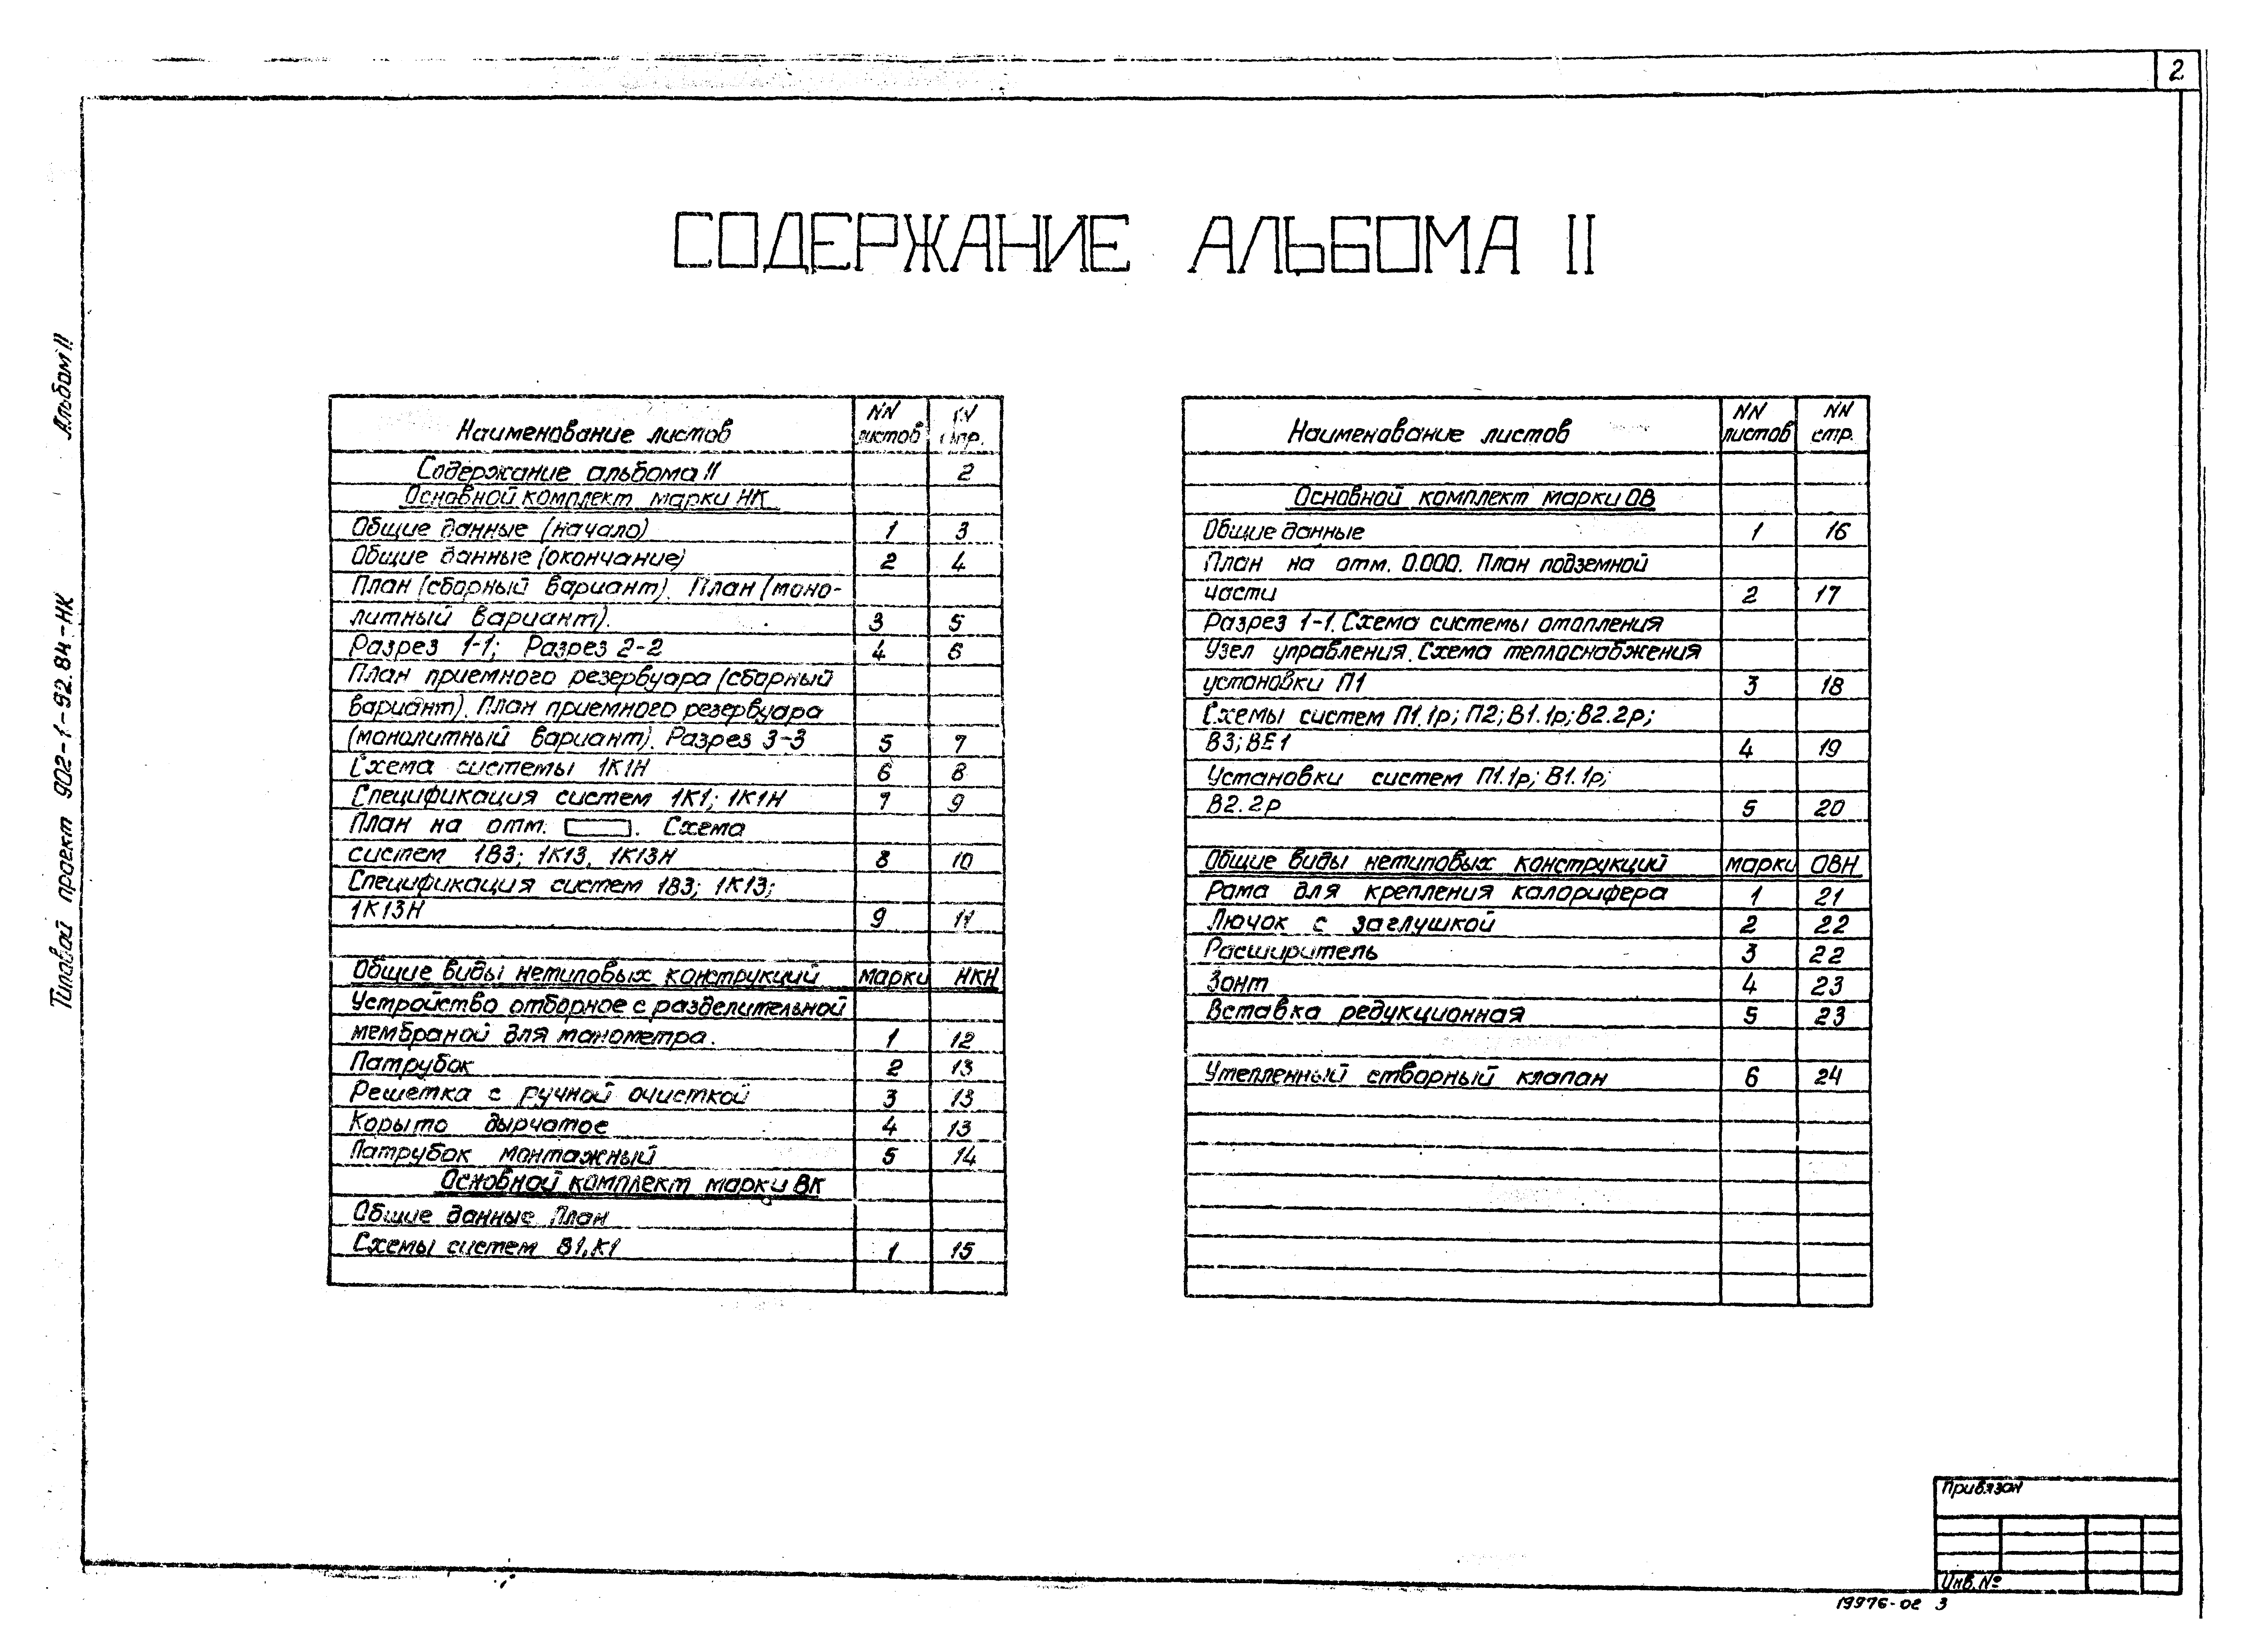 2
СОДЕРЖАНИЕ АЛЬБОМА II
Альбом II
Типовой проект 902-1-92.84-НК
Наименование листов NN листов NN стр.
Содержание альбома II 2
Основной комплект марки НК
Общие данные (начало) 1 3
Общие данные (окончание) 2 4
План (сборный вариант). План (моно-
литный вариант). 3 5
Разрез 1-1; Разрез 2-2 4 6
План приемного резервуара (сборный
вариант). План приемного резервуара
(монолитный вариант). Разрез 3-3 5 7
Схема системы 1К1Н 6 8
Спецификация систем 1К1; 1К1Н 7 9
План на отм. . Схема
систем 1В3; 1К13, 1К13Н 8 10
Спецификация систем 1В3; 1К13;
1К13Н 9 11
Общие виды нетиповых конструкций марки НКН
Устройство отборное с разделительной
мембраной для манометра. 1 12
Патрубок 2 13
Решетка с ручной очисткой 3 13
Корыто дырчатое 4 13
Патрубок монтажный 5 14
Основной комплект марки ВК
Общие данные План
Схемы систем В1, К1 1 15
Наименование листов NN листов NN стр.
Основной комплект марки ОВ
Общие данные 1 16
План на отм. 0.000. План подземной
части 2 17
Разрез 1-1. Схема системы отопления
Узел управления. Схема теплоснабжения
установки П1 3 18
Схемы систем П1.1р; П2; В1.1р; В2.2р;
В3; ВЕ1 4 19
Установки систем П1.1р; В1.1р;
В2.2р 5 20
Общие виды нетиповых конструкций марки ОВН
Рама для крепления калорифера 1 21
Лючок с заглушкой 2 22
Расширитель 3 22
Зонт 4 23
Вставка редукционная 5 23
Утепленный створный клапан 6 24
Привязан
Инв. №
19976-02 3